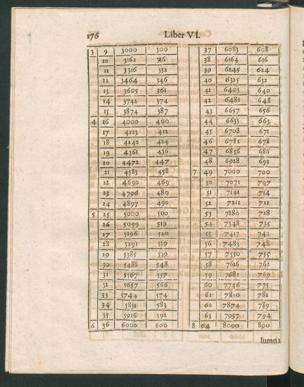 176 Liber VI.
3 9 3000 300
10 3162
11 3316
12 3464 346
13 3605 361
14 3742 374
15 3874 387
4 16 4000 400
17 4123 412
18 4242 424
19 4361 436
20 4472 447
21 4583 458
22 4690 469
23 4796 480
24 4897 490
5 25 5000 500
26 5099 510
27 5196 520
28 5291 529
29 5385 539
30 5488 548
31 5567 557
32 5657 566
33 5744 574
34 5831 583
35 5916 592
6 36 6000 600
37 6083 608
38 6164 616
39 6245 624
40 6325 632
41 6403 640
42 6481 648
43 6657 656
44 6633 663
45 6708 671
46 6782 678
47 6856 686
48 6928 693
7 49 7000 700
50 7071 707
51 7141 714
52 7211 721
53 7280 728
54 7348 735
55 7417 742
56 7483 748
57 7550 755
58 7616 762
59 7681
60 7746 775
61 7810 781
62 7874 787
63 7937 794
8 64 8000 800